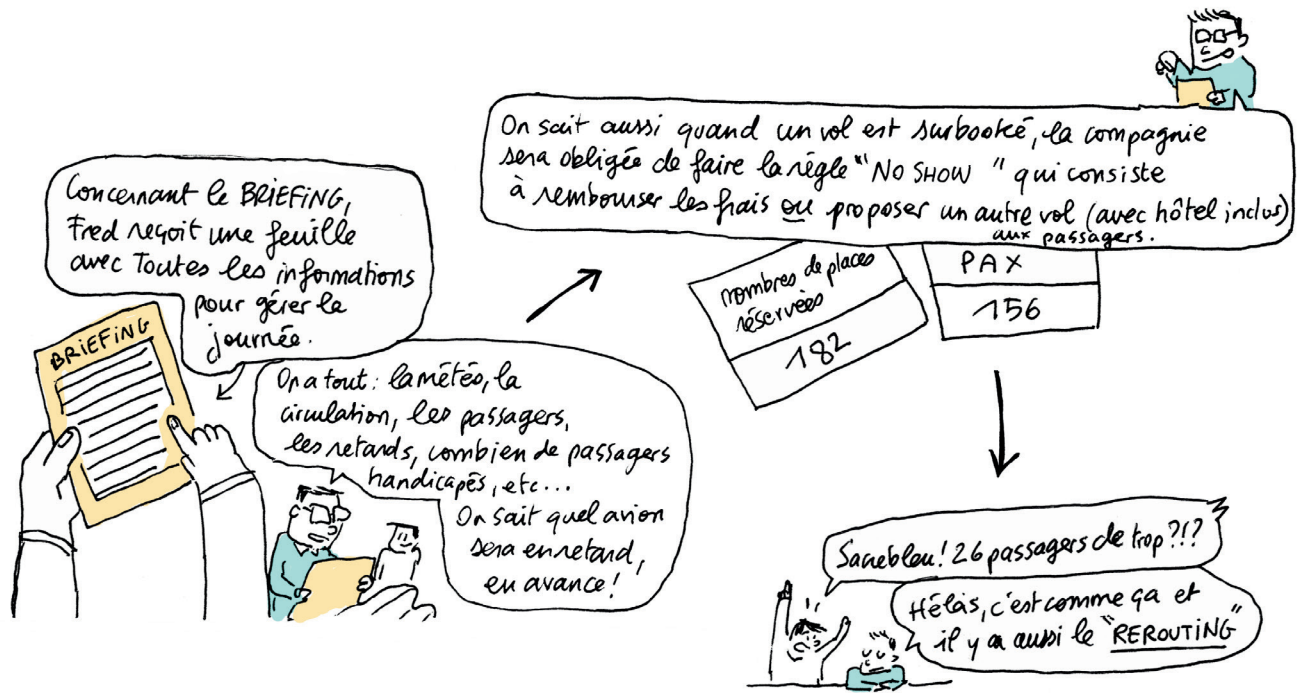 Concernant le BRIEFING,
Fred reçoit une feuille
avec Toutes les informations
pour gérer la
journée.
BRIEFING
On a tout : la météo, la
circulation, les passagers,
les retards, combien de passagers
handicapés, etc...
On sait quel avion
sera en retard,
en avance !
On sait aussi quand un vol est surbooké, la compagnie
sera obligée de faire la règle "NO SHOW" qui consiste
à rembourser les frais ou proposer un autre vol (avec hôtel inclus)
aux passagers.
nombres de places
réservées
182
PAX
156
Sacrebleu! 26 passagers de trop?!?
Hélas, c'est comme ça et
il y a aussi le "REROUTING"